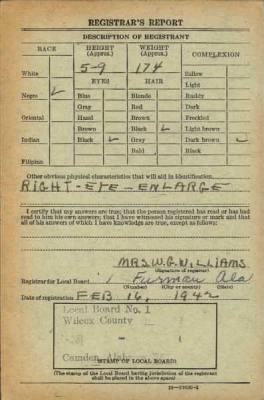 REGISTRAR'S REPORT
DESCRIPTION OF REGISTRANT
RACE HEIGHT (Approx.) WEIGHT (Approx.) COMPLEXION
5-9 174
White Sallow
EYES HAIR Light
Negro ✓ Blue Blonde Ruddy
Gray Red Dark
Oriental Hazel Brown Freckled
Brown Black ✓ Light brown
Indian Black ✓ Gray Dark brown ✓
Bald Black
Filipino
Other obvious physical characteristics that will aid in identification
RIGHT-EYE-ENLARGE
I certify that my answers are true; that the person registered has read or has had
read to him his own answers; that I have witnessed his signature or mark and that
all of his answers of which I have knowledge are true, except as follows:
MRS W.G. WILLIAMS
(Signature of registrar)
Registrar for Local Board 1 Furman Ala
(Number) (City or county) (State)
Date of registration FEB 16, 1942
Local Board No. 1
Wilcox County
Camden, Ala.
(STAMP OF LOCAL BOARD)
(The stamp of the Local Board having jurisdiction of the registrant
shall be placed in the above space)